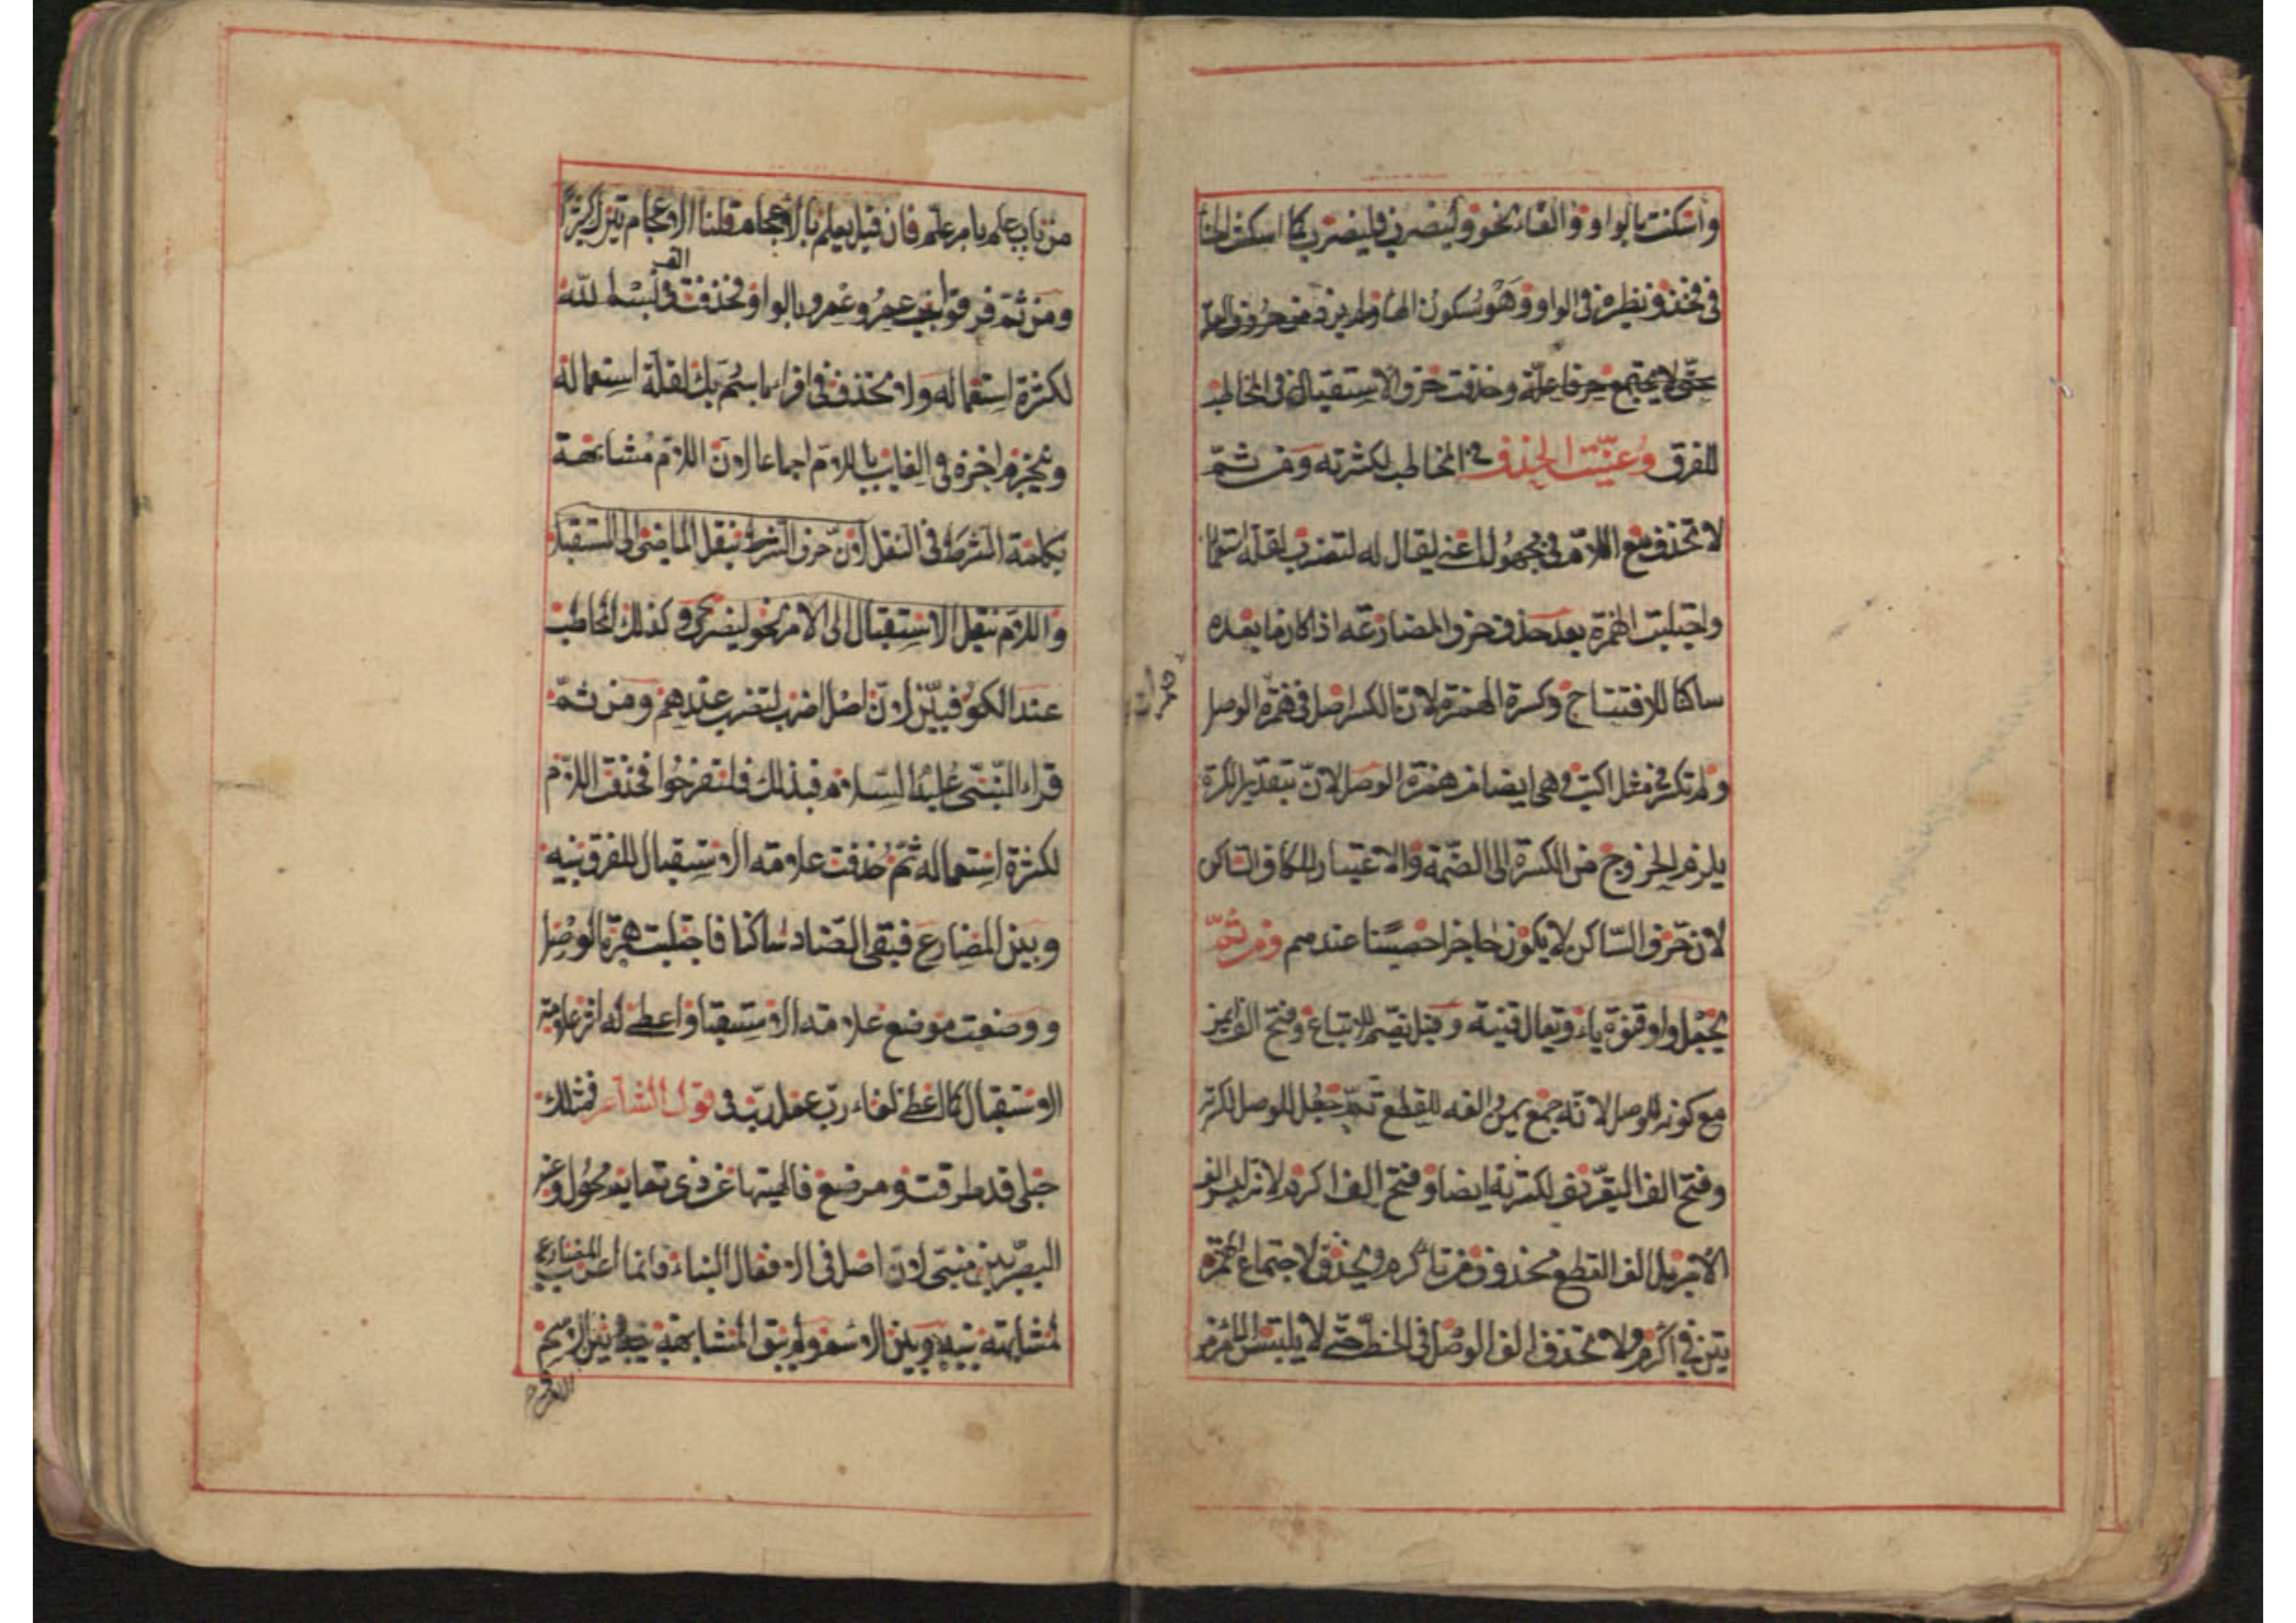 واسكنت بالواو والفاء نحو وليضرب فليضرب كما اسكنت الخاء
فى فخذ ونظيره فى الواو وهو سكون الهاء ولم يزد من حروف العلة
حتى لا يجتمع حرفا علة وحذفت حرف الاستقبال فى المخاطب
للفرق وعينت الحذف فى المخاطب لكثرته ومن ثم
لا تحذف مع اللام فى مجهول اعنى يقال له لتضرب لقلة استعمال
واجتلبت الهمزة بعد حذف حرف المضارعة اذا كان ما بعده
ساكنا للافتتاح وكسرة الهمزة لان الكسر اصل فى همزة الوصل
ولم تكسر فى مثل اكتب وهى ايضا من همزة الوصل لان بتقدير الكسرة
يلزم الخروج من الكسرة الى الضمة والاعتبار للكاف الساكن
لان حرف الساكن لا يكون حاجزا حصينا عندهم ومن ثم
يجعل واو قنوة ياء ويقال قنية وقيل تضم للاتباع وفتح الف ايمن
مع كونه للوصل لانه جمع يمين والفه للقطع ثم جعل للوصل لكثرته
وفتح الف التعريف لكثرته ايضا وفتح الف اكرم لانه ليس الف
الامر بل الف القطع محذوف من تأكرم ويحذف لاجتماع الهمزة
تين فى أكرم ولا تحذف الف الوصل فى الخط حتى لا يلتبس الامر
همزات
من باب علم بامر علّم فان قيل يعلم بالاعجام قلنا الاعجام تترك كثيرًا
ومن ثم فرقوا بين عمر وعمرو بالواو فحذفت الف فى بسم الله
لكثرة استعماله ولا تحذف فى اقرأ باسم ربك لقلة استعماله
وتجزم اخره فى الغايب باللام اجماعا لان اللام مشابهة
بكلمة الشرط فى النقل لان حرف الشرط ينقل الماضى الى المستقبل
واللام تنقل الاستقبال الى الامر نحو ليضرب وكذلك المخاطب
عند الكوفيين لان اصل اضرب لتضرب عندهم ومن ثمّ
قراء النبى عليه السلام فبذلك فلتفرحوا فحذفت اللام
لكثرة استعماله ثم حذفت علامة الاستقبال للفرق بينه
وبين المضارع فبقى الضاد ساكنا فاجتلبت همزة الوصل
ووضعت موضع علامة الاستقبال واعطى له اثر علامة
الاستقبال كما اعطى لفاء رب عمل رب فى قول الشاعر فمثلك
حبلى قد طرقت ومرضع فالهيتها عن ذى تمايم محول وعند
البصريين مبنى لان اصل فى الافعال البناء وانما اعرب المضارع
لمشابهته بينه وبين الاسم ولم يبق المشابهة بينه وبين الاسم